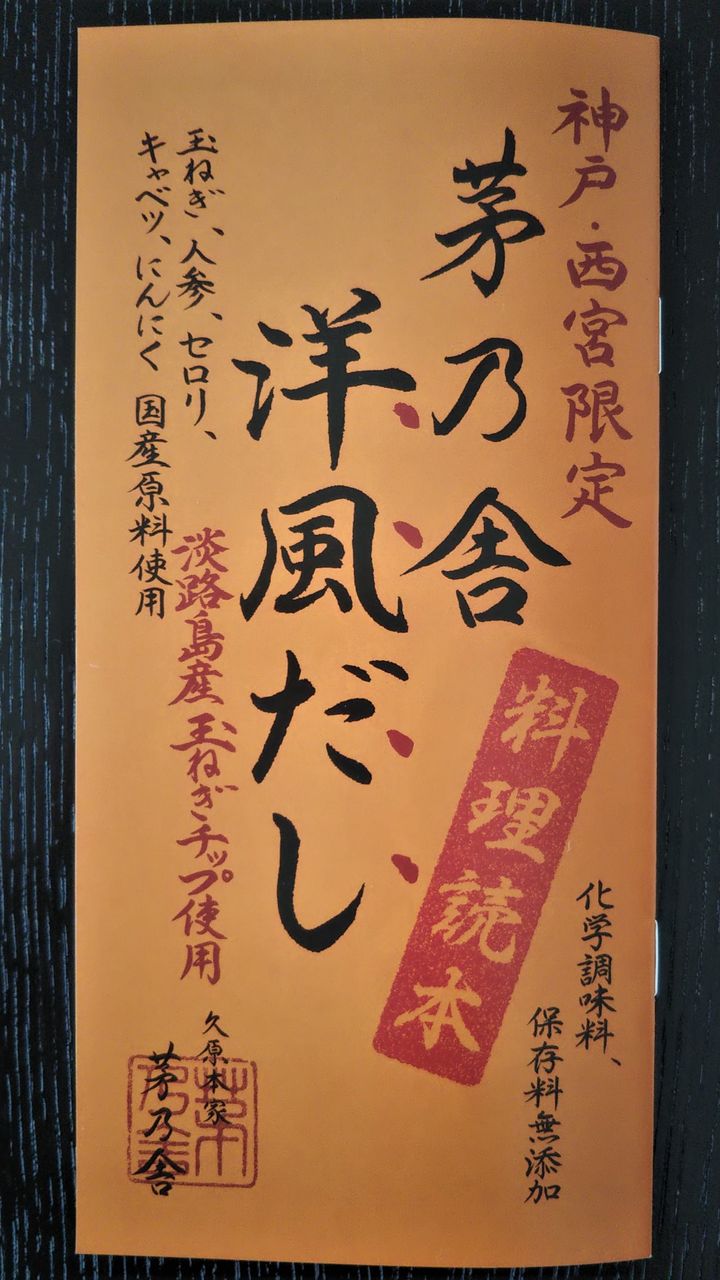 神戸・西宮限定
茅乃舎
洋風だし
料理読本
化学調味料、
保存料無添加
玉ねぎ、人参、セロリ、
キャベツ、にんにく 国産原料使用
淡路島産玉ねぎチップ使用
久原本家
茅乃舎